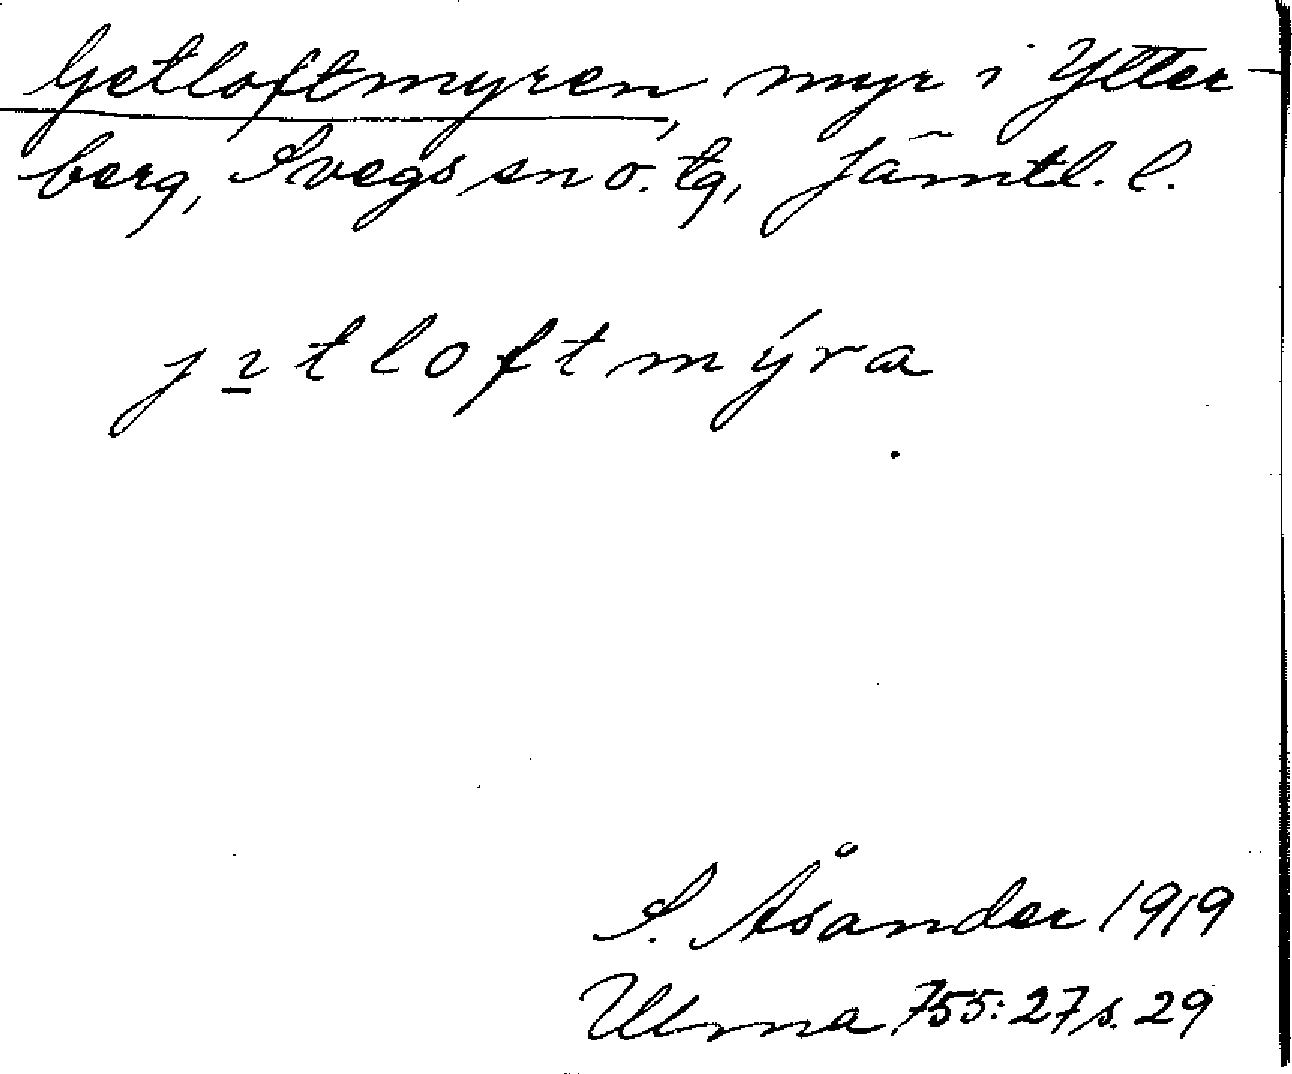 Getloftmyren, myr i Ytter-
berg, Svegs sn o. tg, Jämtl. l.
jıtloftmýra
S. Åsander 1919
Ulma 755:27 s. 29